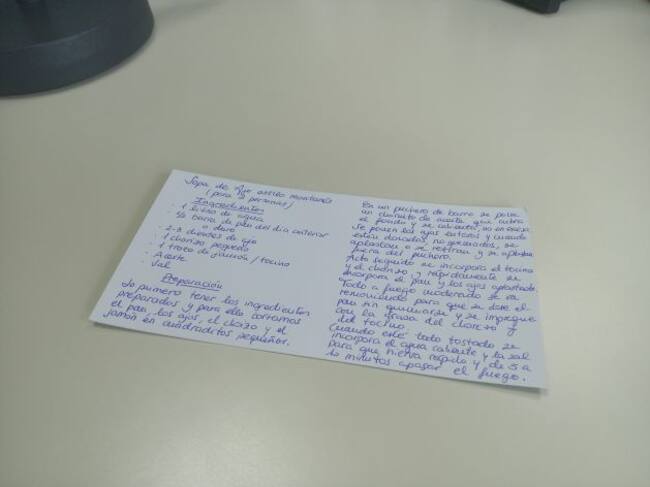 Sopa de Ajo estilo montañés
(para 4 personas)
Ingredientes
- 1 litro de agua
- 1/2 barra de pan del día anterior
o duro
- 2-3 dientes de ajo
- 1 chorizo pequeño
- 1 trozo de jamón / tocino
- Aceite
- Sal
Preparación
Lo primero tener los ingredientes
preparados y para ello cortamos
el pan, los ajos, el chorizo y el
jamón en cuadraditos pequeños.
En un puchero de barro se pone
un chorrito de aceite que cubra
el fondo y se calienta, no en exceso.
Se ponen los ajos enteros y cuando
estén dorados, no quemados, se
aplastan o se retiran y se aplastan
fuera del puchero.
Acto seguido se incorpora el tocino
y el chorizo y rápidamente se
incorpora el pan y los ajos aplastados.
Todo a fuego moderado se va
removiendo para que se dore el
pan sin quemarse y se impregne
con la grasa del chorizo y
del tocino.
Cuando esté todo tostado se
incorpora el agua caliente y la sal
para que hierva rápido y de 5 a
10 minutos apagar el fuego.